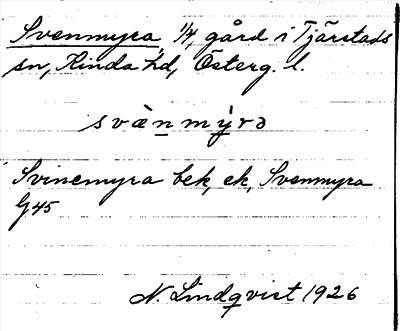 Svenmyra, 1/4 gård i Tjärstads
sn, Kinda hd, Österg. l.
svȧ̀n my̍rə
Svinemyra bek, ek, Svenmyra
G45
N. Lindqvist 1926